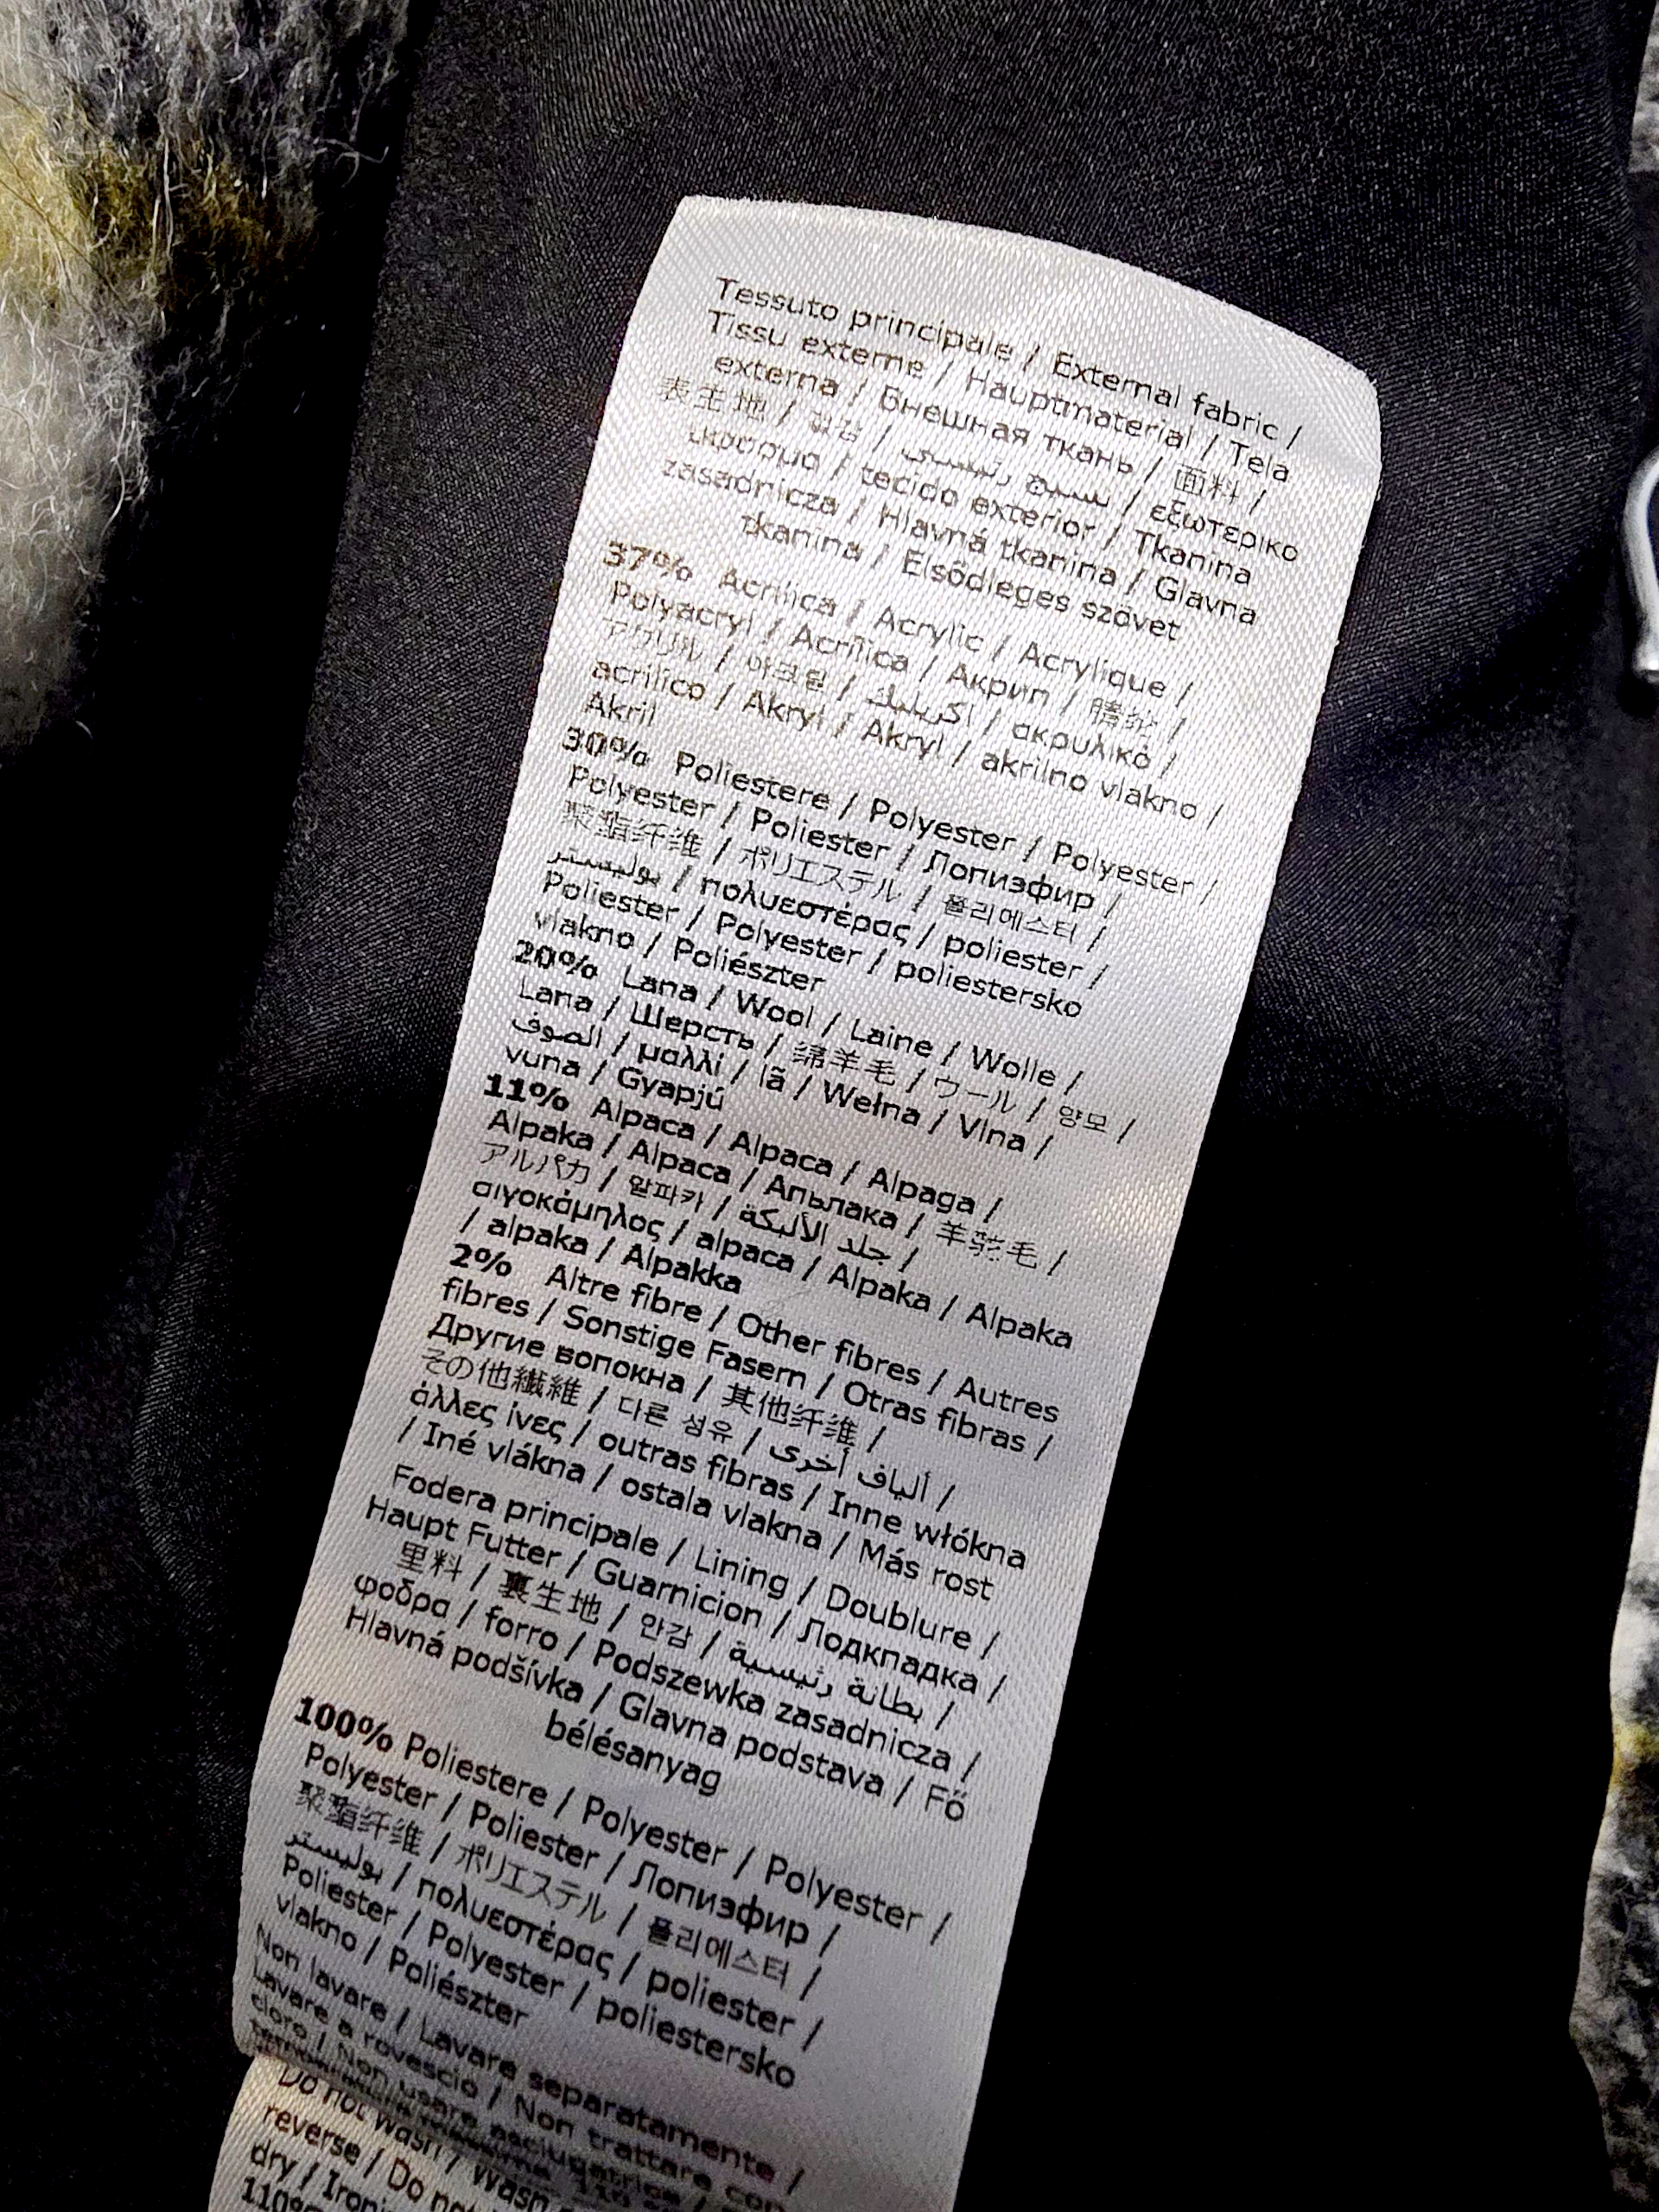 Tessuto principale / External fabric /
Tissu externe / Hauptmaterial / Tela
externa / Внешная ткань / 面料 /
表生地 / 겉감 / نسيج رئيسي / εξωτερικο
ύφασμα / tecido exterior / Tkanina
zasadnicza / Hlavná tkanina / Glavna
tkanina / Elsődleges szövet
37% Acrilica / Acrylic / Acrylique /
Polyacryl / Acrílica / Акрил / 腈纶 /
アクリル / 아크릴 / اكريليك / ακρυλικό /
acrílico / Akryl / Akryl / akrilno vlakno /
Akril
30% Poliestere / Polyester / Polyester /
Polyester / Poliester / Полиэфир /
聚酯纤维 / ポリエステル / 폴리에스터 /
بوليستر / πολυεστέρας / poliester /
Poliester / Polyester / poliestersko
vlakno / Poliészter
20% Lana / Wool / Laine / Wolle /
Lana / Шерсть / 绵羊毛 / ウール / 양모 /
الصوف / μαλλί / lã / Wełna / Vlna /
vuna / Gyapjú
11% Alpaca / Alpaca / Alpaga /
Alpaka / Alpaca / Апьлака / 羊驼毛 /
アルパカ / 알파카 / جلد الألبكة /
αιγοκάμηλος / alpaca / Alpaka / Alpaka
/ alpaka / Alpakka
2% Altre fibre / Other fibres / Autres
fibres / Sonstige Fasern / Otras fibras /
Другие волокна / 其他纤维 /
その他繊維 / 다른 섬유 / ألياف أخرى /
άλλες ίνες / outras fibras / Inne włókna
/ Iné vlákna / ostala vlakna / Más rost
Fodera principale / Lining / Doublure /
Haupt Futter / Guarnicion / Лодкладка /
里料 / 裏生地 / 안감 / بطانة رئيسية /
φοδρα / forro / Podszewka zasadnicza /
Hlavná podšívka / Glavna podstava / Fő
bélésanyag
100% Poliestere / Polyester / Polyester /
Polyester / Poliester / Полиэфир /
聚酯纤维 / ポリエステル / 폴리에스터 /
بوليستر / πολυεστέρας / poliester /
Poliester / Polyester / poliestersko
vlakno / Poliészter
Non lavare / Lavare separatamente /
Lavare a rovescio / Non trattare con
cloro / Non usare asciugatrice /
Do not wash / Wash
reverse / Do not
dry / Ironi
110°